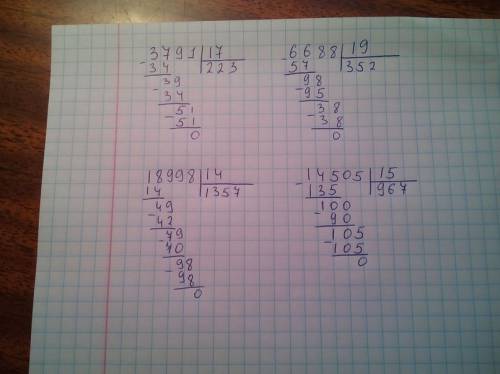 3791 | 17
- 34 | 223
- 39
34
- 51
51
0
- 6688 | 19
57 | 352
- 98
95
- 38
38
0
18998 | 14
14 | 1357
- 49
42
- 79
70
- 98
98
0
- 14505 | 15
135 | 967
- 100
90
- 105
105
0